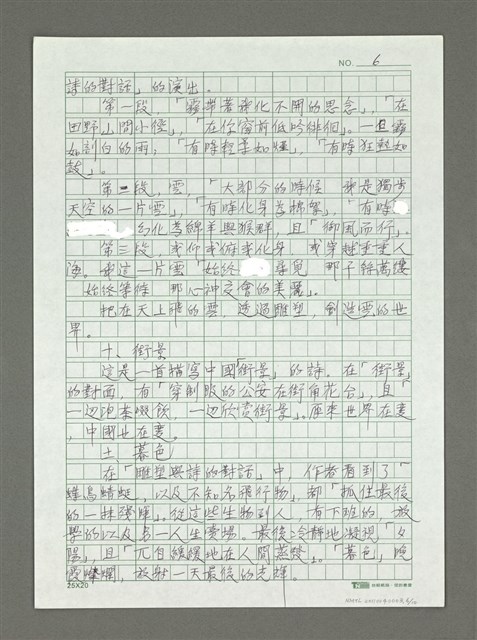 NO. 6
詩的對話」的演出。
第一段，「霧帶著霧化不開的思念」，「在
田野山間小徑」，「在你窗前低吟徘徊」。一旦霧
如割白的雨，「有時輕柔如煙」，「有時狂鼓如
鼓」。
第二段，雲，「大部分的時候 我是獨步
天空的一片雲」，「有時化身為棉絮」，「有時
幻化為綿羊與猴群，且「御風而行」。
第三段，或仰或俯或化身 或穿越重重人
海。我這一片雲「始終 尋覓 那千絲萬縷
始終等待 那心神交會的美麗」。
把在天上飛的雲，透過雕塑，創造雲的世
界。
十、街景
這是一首描寫中國「街景」的詩。在「街景」
的對面，有「穿制服的公安在街角花台」，且「
一邊泡茶啜飲，一邊欣賞街景」。原來世界在變
，中國也在變。
十一、暮色
在「雕塑與詩的對話」中，作者看到了「
雄鳥蜻蜓，以及不知名飛行物」，都「抓住最後
的一抹殘暉」。從這些生物到人，有下班的、放
學的以及另一人生賣場。最後冷靜地凝視「夕
陽」，且「兀自緩緩地在人間蒸發」。「暮色」晚
霞燦爛，放射一天最後的光輝。
25X20